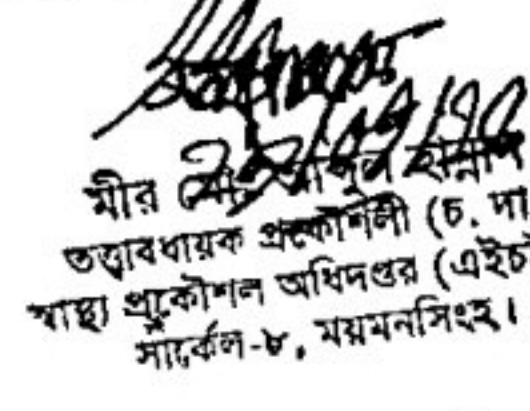 মীর মোঃ আব্দুল হান্নান
তত্ত্বাবধায়ক প্রকৌশলী (চ. দা
স্বাস্থ্য প্রকৌশল অধিদপ্তর (এইচ
সার্কেল-৮, ময়মনসিংহ।